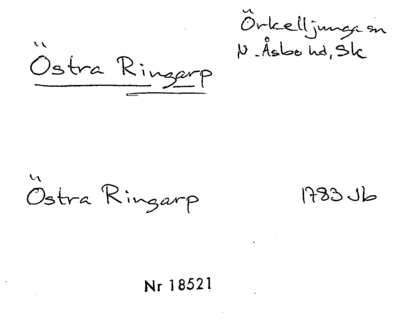 Östra Ringarp
Örkelljunga sn
N. Åsbo hd, Sk
Östra Ringarp 1783 Jb
Nr 18521